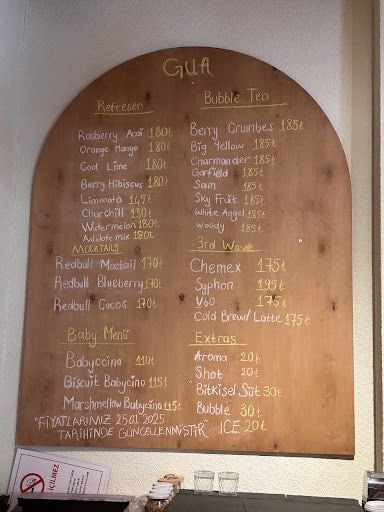 GUA
Refreser
Rasberry Acai 180₺
Orange Mango 180₺
Cool Lime 180₺
Berry Hibiscus 180₺
Limonata 145₺
Churchill 130₺
Watermelon 180₺
Antidote mix 180₺
MOCKTAILS
Redbull Moctail 170₺
Redbull Blueberry 170₺
Redbull Cocos 170₺
Baby Menü
Babyccino 110₺
Biscuit Babycino 115₺
Marshmellow Babycino 115₺
"FİYATLARIMIZ 25.01.2025
TARİHİNDE GÜNCELLENMİŞTİR"
Bubble Tea
Berry Crumbes 185₺
Big Yellow 185₺
Charmander 185₺
Garfield 185₺
Sam 185₺
Sky Fruit 185₺
White Angel 185₺
Woody 185₺
3rd Wave
Chemex 175₺
Syphon 195₺
V60 175₺
Cold Brew/Latte 175₺
Extras
Aroma 20₺
Shot 20₺
Bitkisel Süt 30₺
Bubble 30₺
ICE 20₺
İÇİLMEZ